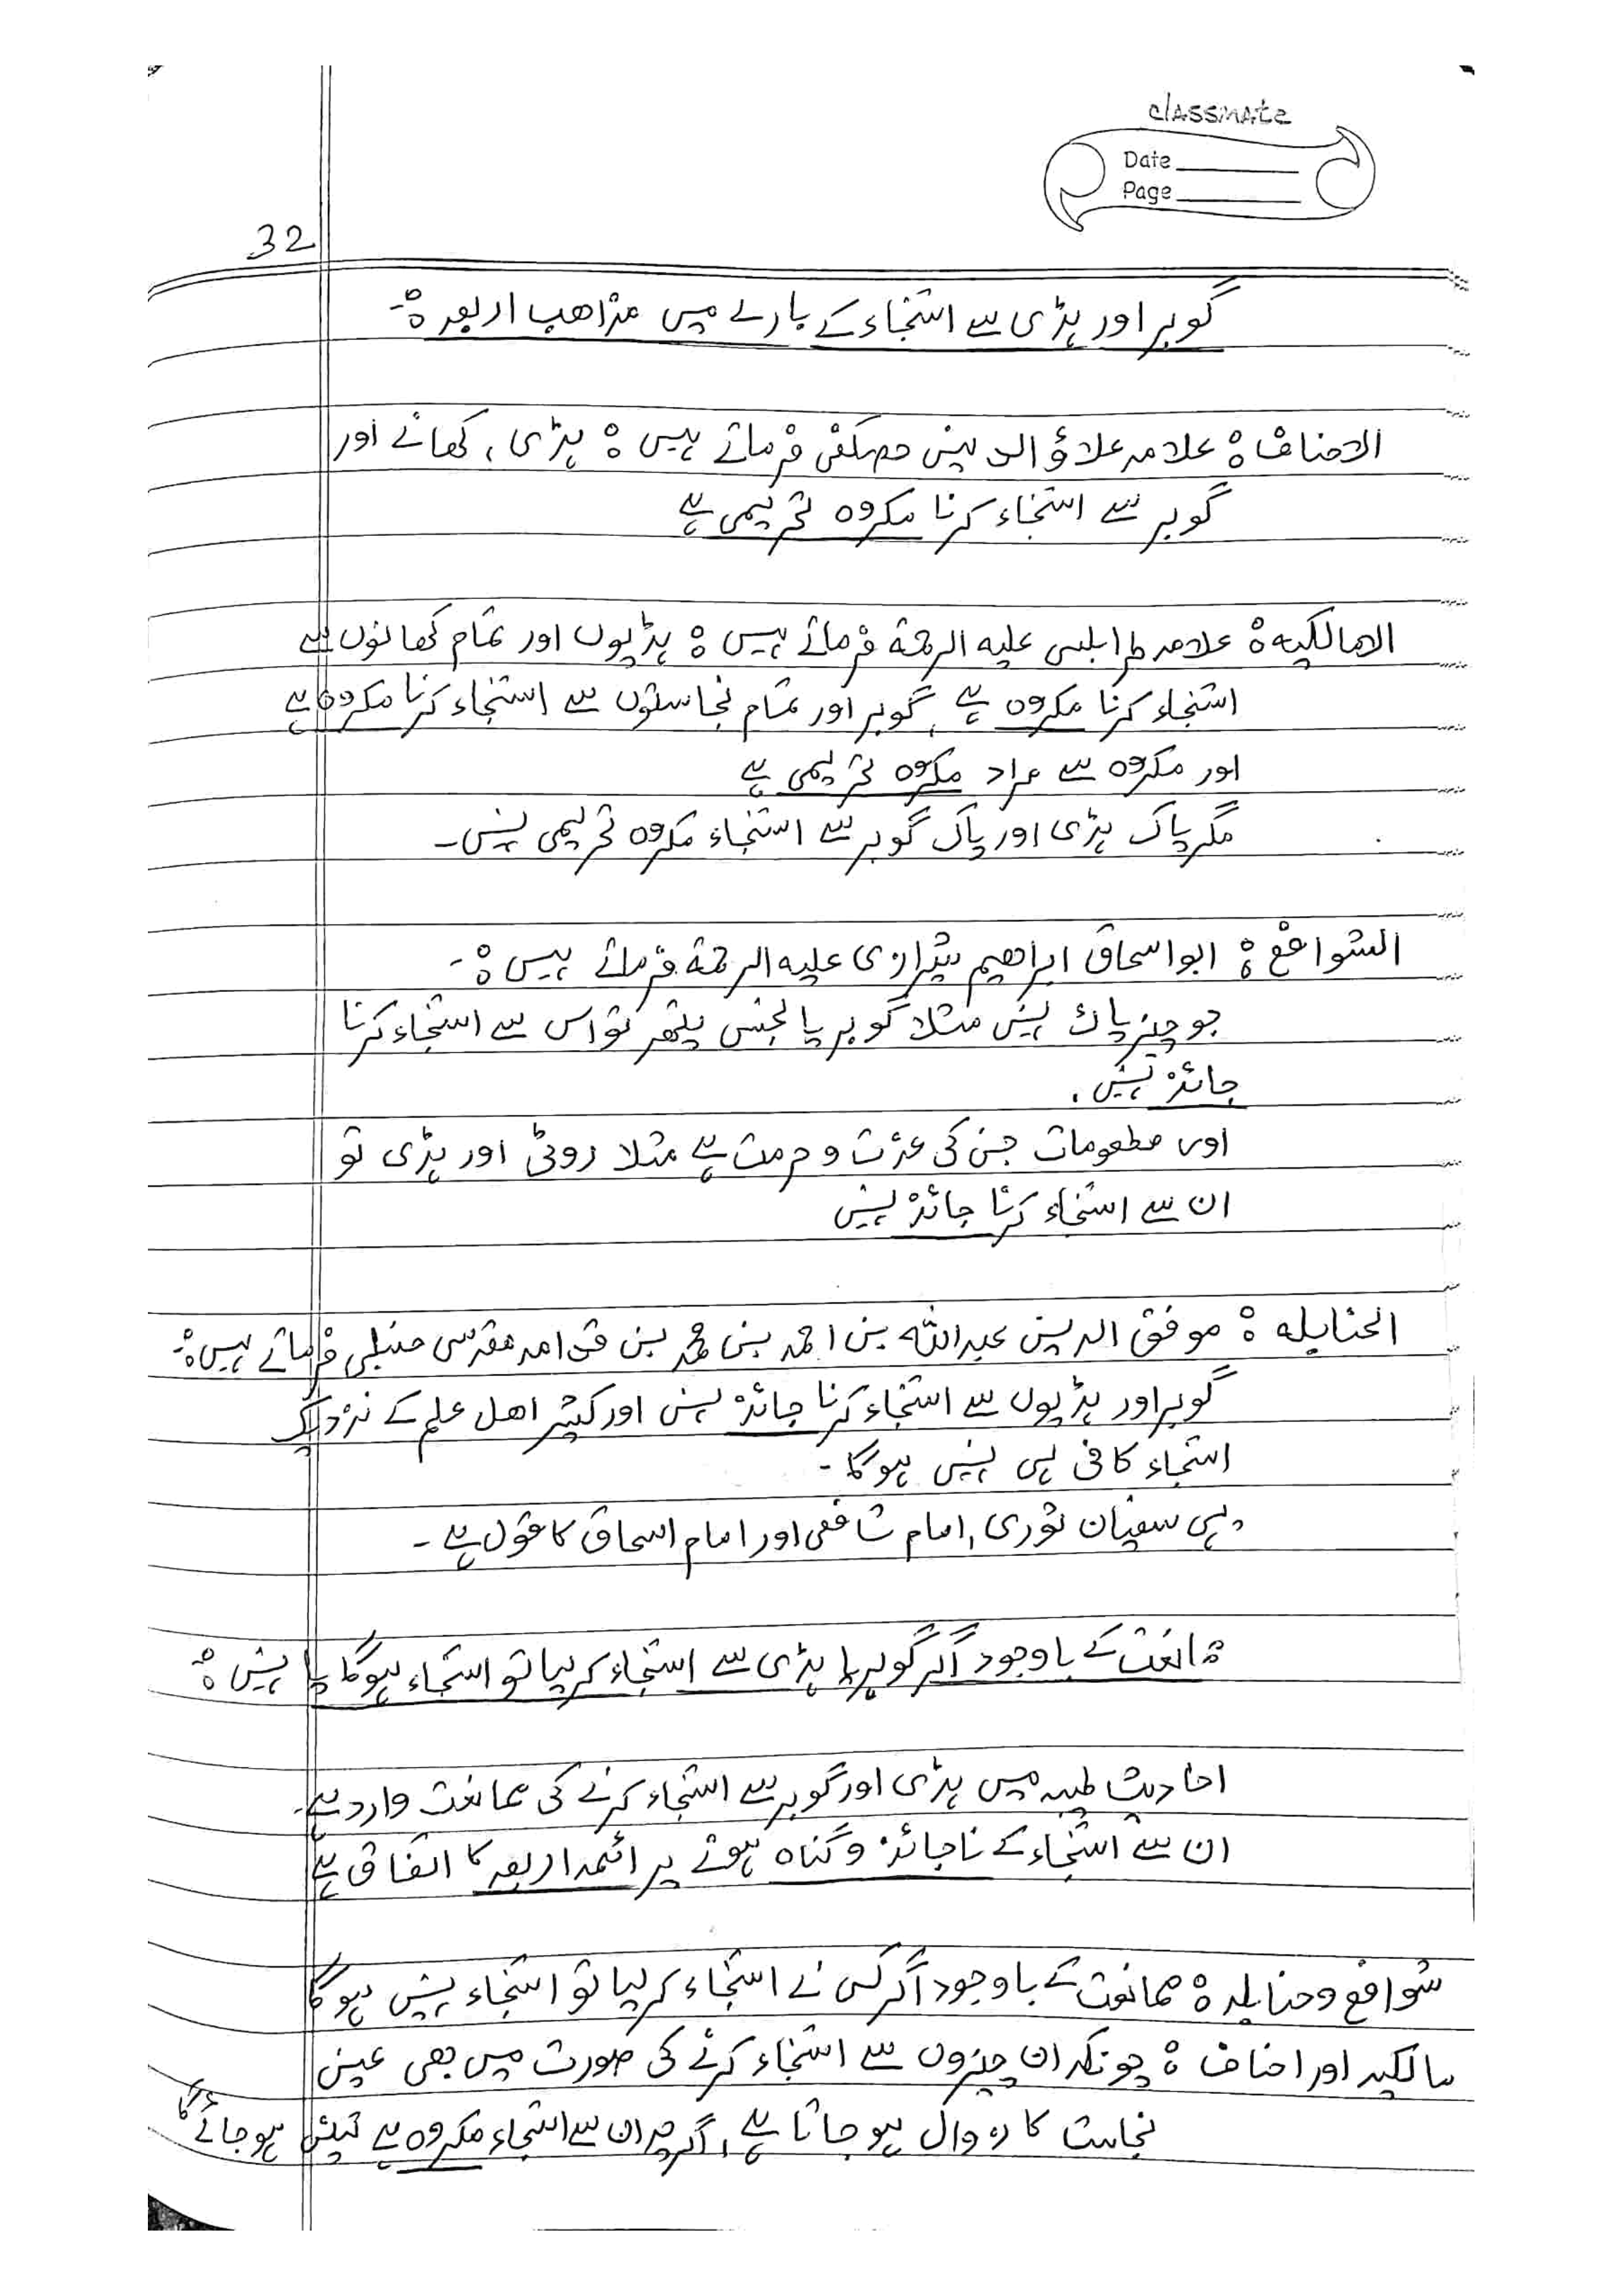 classmate
Date
Page
32
گوبر اور ہڈی سے استنجاء کے بارے میں مذاھب اربعہ :-
الاحناف : علامہ علاؤ الدین حصکفی فرماتے ہیں : ہڈی ، کھانے اور
گوبر سے استنجاء کرنا مکروہ تحریمی ہے
المالکیہ : علامہ طرابلسی علیہ الرحمۃ فرماتے ہیں : ہڈیوں اور تمام کھانوں سے
استنجاء کرنا مکروہ ہے ، گوبر اور تمام نجاستوں سے استنجاء کرنا مکروہ ہے
اور مکروہ سے مراد مکروہ تحریمی ہے
مگر پاک ہڈی اور پاک گوبر سے استنجاء مکروہ تحریمی نہیں ۔
الشوافع : ابو اسحاق ابراھیم شیرازی علیہ الرحمۃ فرماتے ہیں :-
جو چیز پاک نہیں مثلا گوبر یا نجس پتھر تو اس سے استنجاء کرنا
جائز نہیں ،
اور مطعومات جن کی عزت و حرمت ہے مثلا روٹی اور ہڈی تو
ان سے استنجاء کرنا جائز نہیں
الحنابلہ : موفق الدین عبداللہ بن احمد بن محمد بن قدامہ مقدسی حنبلی فرماتے ہیں :-
گوبر اور ہڈیوں سے استنجاء کرنا جائز نہیں اور کثیر اھل علم کے نزدیک
استنجاء کافی ہی نہیں ہوگا ۔
یہی سفیان ثوری ، امام شافعی اور امام اسحاق کا قول ہے ۔
ممانعت کے باوجود اگر گوبر یا ہڈی سے استنجاء کر لیا تو استنجاء ہوگا یا نہیں :-
احادیث طیبہ میں ہڈی اور گوبر سے استنجاء کرنے کی ممانعت وارد ہے ۔
ان سے استنجاء کے ناجائز و گناہ ہونے پر ائمہ اربعہ کا اتفاق ہے
شوافع و حنابلہ : ممانعت کے باوجود اگر کسی نے استنجاء کر لیا تو استنجاء نہیں ہوگا
مالکیہ اور احناف : چونکہ ان چیزوں سے استنجاء کرنے کی صورت میں بھی عین
نجاست کا زوال ہو جاتا ہے ، اگرچہ ان سے استنجاء مکروہ ہے لیکن ہو جائے گا